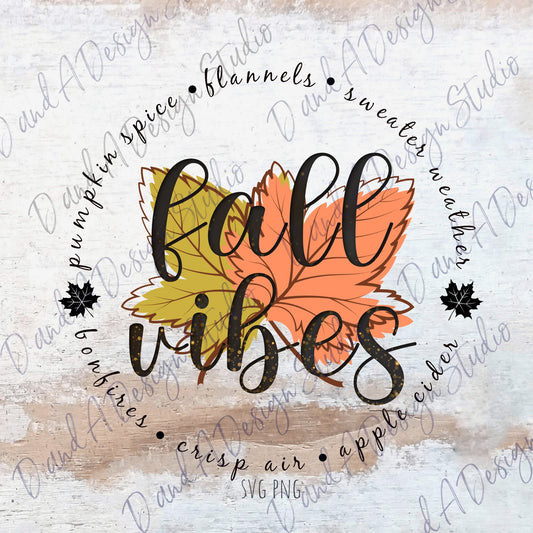 pumpkin spice • flannels • sweater weather
fall
vibes
bonfires • crisp air • apple cider
SVG PNG
D and A Design Studio
D and A Design Studio
D and A Design Studio
D and A Design Studio
D and A Design Studio
D and A Design Studio
D and A Design Studio
D and A Design Studio